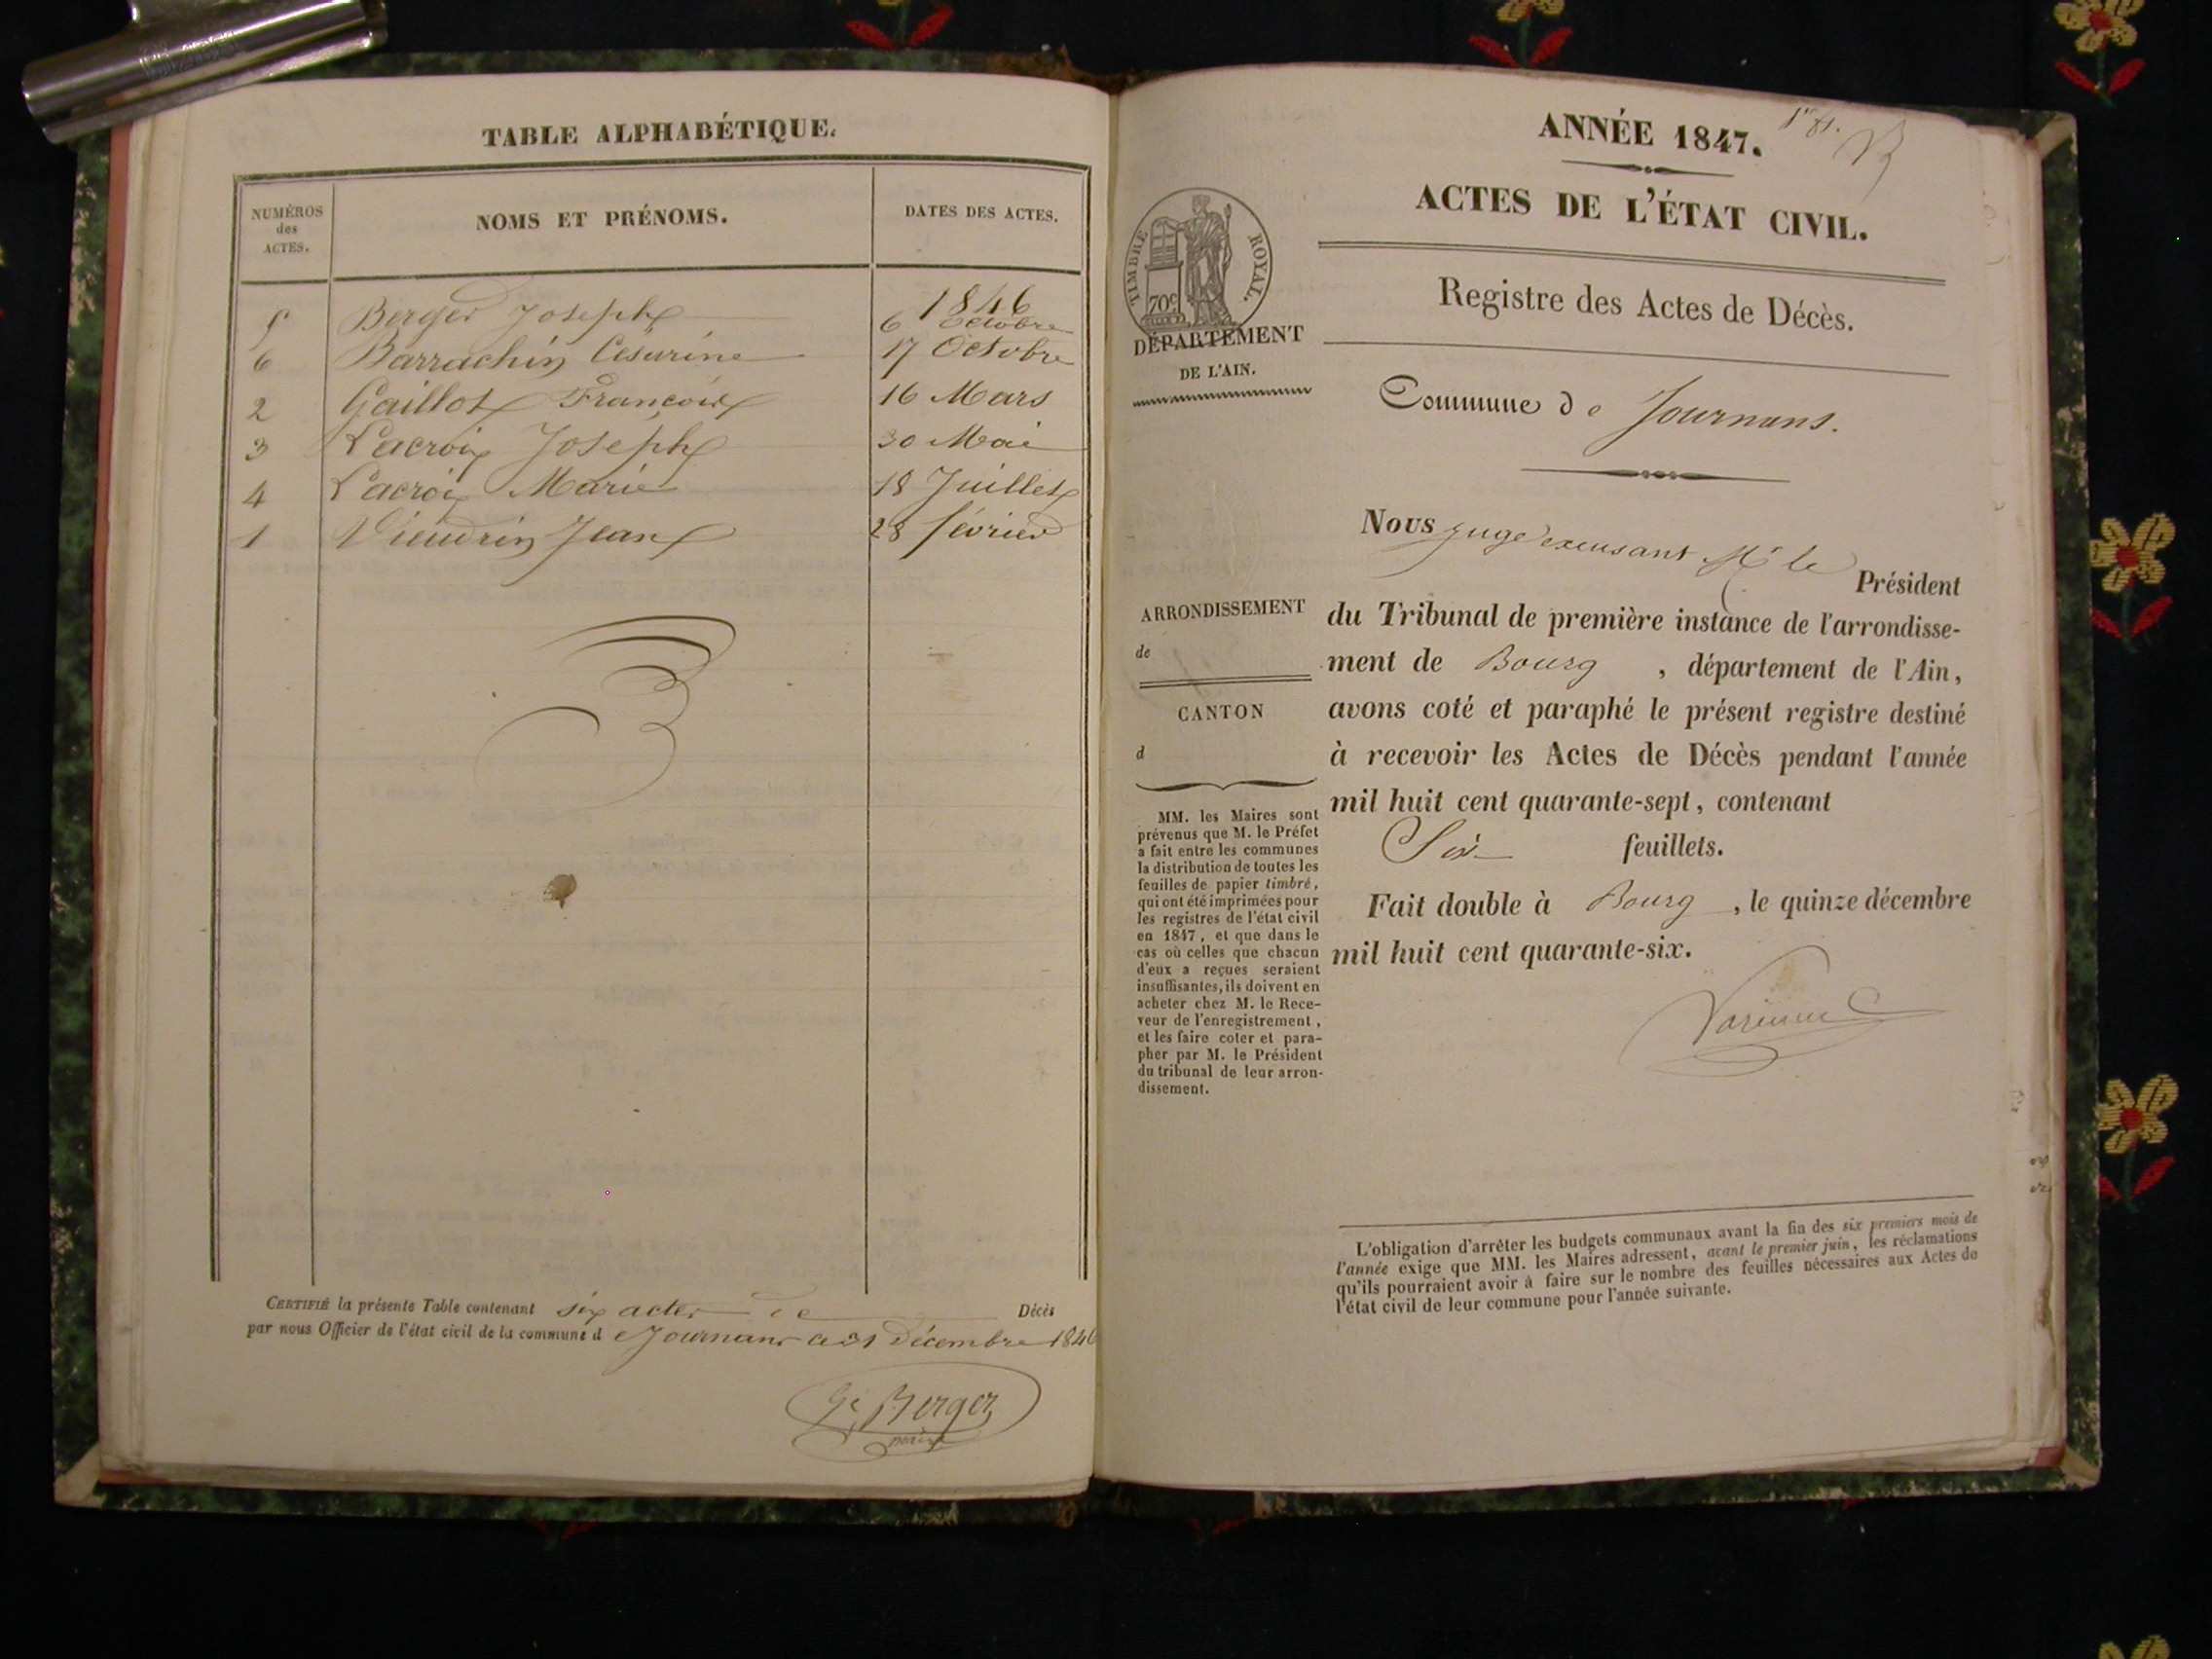 TABLE ALPHABÉTIQUE.
NUMÉROS
des
ACTES.
NOMS ET PRÉNOMS.
DATES DES ACTES.
1846
5 Berger Joseph 6 Octobre
6 Barrachin Césarine 17 Octobre
2 Gaillot François 16 Mars
3 Lacroix Joseph 30 Mai
4 Lacroix Marie 18 Juillet
1 Vieudrin Jean 28 février
CERTIFIÉ la présente Table contenant six actes de Décès
par nous Officier de l'état civil de la commune de Journans ce 31 Décembre 1846
Berger
maire
ANNÉE 1847.
ACTES DE L'ÉTAT CIVIL.
TIMBRE ROYAL.
70c
DÉPARTEMENT
DE L'AIN.
Registre des Actes de Décès.
Commune de Journans.
Nous juge excusant Mr le Président
du Tribunal de première instance de l'arrondisse-
ment de Bourg, département de l'Ain,
avons coté et paraphé le présent registre destiné
à recevoir les Actes de Décès pendant l'année
mil huit cent quarante-sept, contenant
Six feuillets.
Fait double à Bourg, le quinze décembre
mil huit cent quarante-six.
ARRONDISSEMENT
de
CANTON
d
MM. les Maires sont
prévenus que M. le Préfet
a fait entre les communes
la distribution de toutes les
feuilles de papier timbré,
qui ont été imprimées pour
les registres de l'état civil
en 1847, et que dans le
cas où celles que chacun
d'eux a reçues seraient
insuffisantes, ils doivent en
acheter chez M. le Rece-
veur de l'enregistrement,
et les faire coter et para-
pher par M. le Président
du tribunal de leur arron-
dissement.
L'obligation d'arrêter les budgets communaux avant la fin des six premiers mois de
l'année exige que MM. les Maires adressent, avant le premier juin, les réclamations
qu'ils pourraient avoir à faire sur le nombre des feuilles nécessaires aux Actes de
l'état civil de leur commune pour l'année suivante.